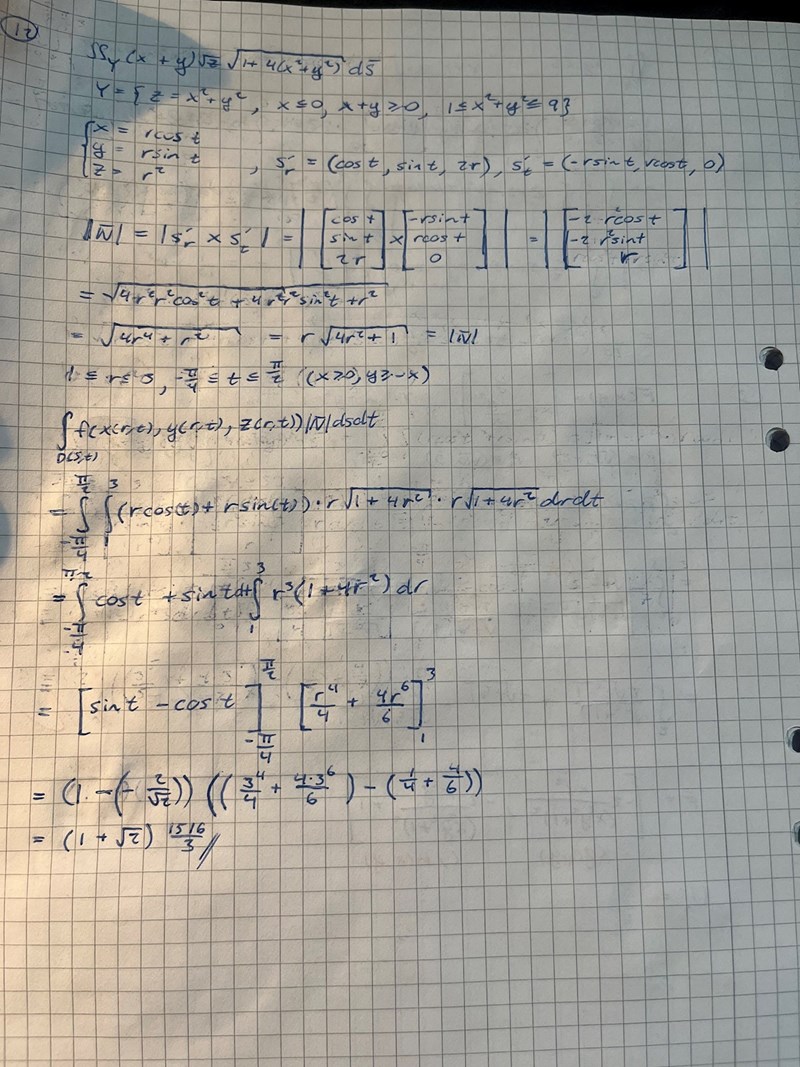 12
∬_Y (x + y)√z √(1 + 4(x² + y²)) dS
Y = { z = x² + y², x ≤ 0, x + y ≥ 0, 1 ≤ x² + y² ≤ 9}
{ x = r cos t
y = r sin t
z = r² , s'_r = (cos t, sin t, 2r), s'_t = (-r sin t, r cos t, 0)
|N̄| = |s'_r × s'_t| = | [cos t, sin t, 2r] × [-r sin t, r cos t, 0] | = | [-2 r² cos t, -2 r² sin t, r] |
= √(4r²r² cos² t + 4r²r² sin² t + r²)
= √(4r⁴ + r²) = r √(4r² + 1) = |N̄|
1 ≤ r ≤ 3, -π/4 ≤ t ≤ π/2 (x ≥ 0, y ≥ -x)
∫_D(s,t) f(x(r,t), y(r,t), z(r,t)) |N̄| ds dt
= ∫_{-π/4}^{π/2} ∫_1^3 (r cos(t) + r sin(t)) · r √(1 + 4r²) · r √(1 + 4r²) dr dt
= ∫_{-π/4}^{π/2} cos t + sin t dt ∫_1^3 r³(1 + 4r²) dr
= [sin t - cos t]_{-π/4}^{π/2} [r⁴/4 + 4r⁶/6]_1^3
= (1 - (- 2/√2)) ((3⁴/4 + 4·3⁶/6) - (1/4 + 4/6))
= (1 + √2) 1516/3 //